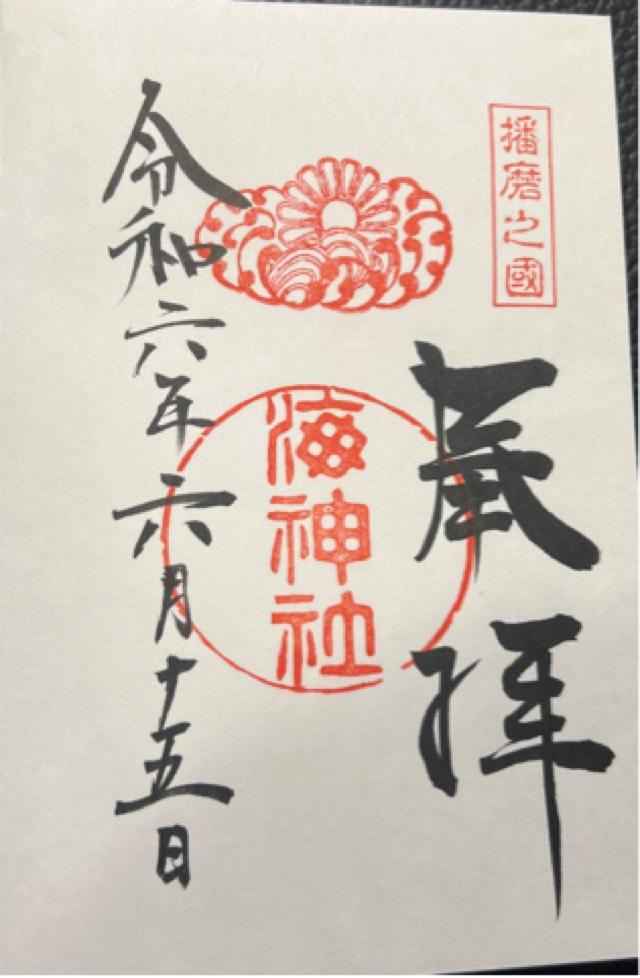 播磨之國
奉拝
海神社
令和六年六月十五日